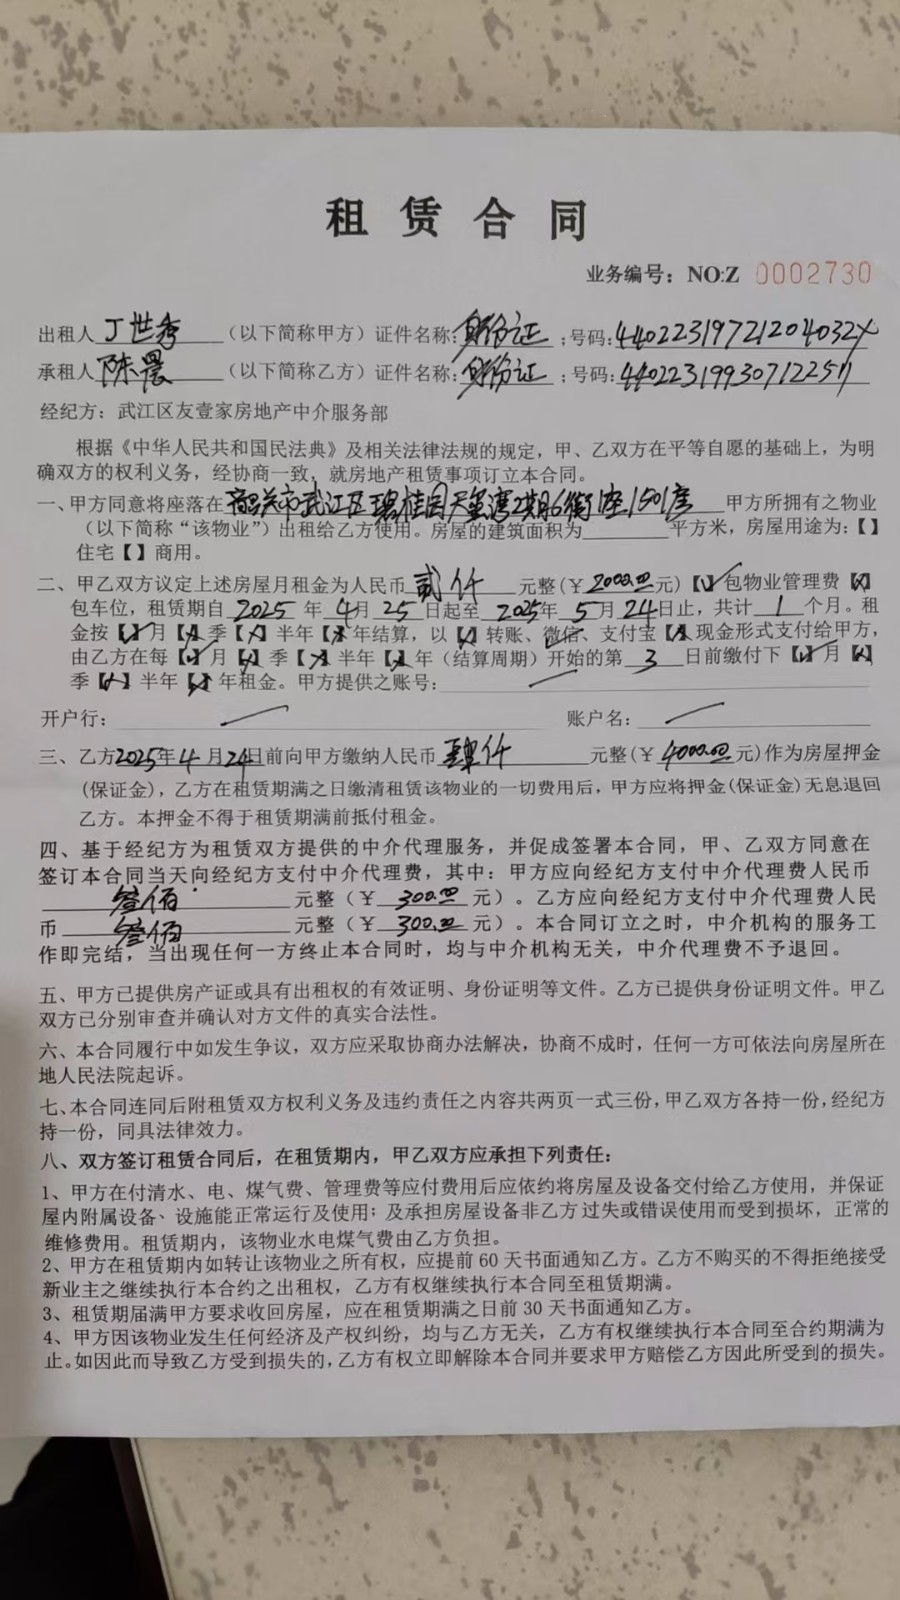 租赁合同
业务编号：NO:Z 0002730
出租人 丁世秀 （以下简称甲方）证件名称：身份证；号码：44022319721204032X
承租人 陈晨 （以下简称乙方）证件名称：身份证；号码：440223199307122511
经纪方：武江区友壹家房地产中介服务部
根据《中华人民共和国民法典》及相关法律法规的规定，甲、乙双方在平等自愿的基础上，为明
确双方的权利义务，经协商一致，就房地产租赁事项订立本合同。
一、甲方同意将座落在 韶关市武江区碧桂园天玺湾2期6街1座1501房 甲方所拥有之物业
（以下简称“该物业”）出租给乙方使用。房屋的建筑面积为______平方米，房屋用途为：【】
住宅【】商用。
二、甲乙双方议定上述房屋月租金为人民币 贰仟 元整(￥ 2000.00 元)【✓】包物业管理费【×】
包车位，租赁期自 2025 年 4 月 25 日起至 2025 年 5 月 24 日止，共计 1 个月。租
金按【✓】月【×】季【×】半年【×】年结算，以【✓】转账、微信、支付宝【×】现金形式支付给甲方，
由乙方在每【✓】月【×】季【×】半年【×】年（结算周期）开始的第 3 日前缴付下【✓】月【×】
季【×】半年【×】年租金。甲方提供之账号：／
开户行：／ 账户名：／
三、乙方2025年4月24日前向甲方缴纳人民币 肆仟 元整(￥ 4000.00 元)作为房屋押金
(保证金)，乙方在租赁期满之日缴清租赁该物业的一切费用后，甲方应将押金(保证金)无息退回
乙方。本押金不得于租赁期满前抵付租金。
四、基于经纪方为租赁双方提供的中介代理服务，并促成签署本合同，甲、乙双方同意在
签订本合同当天向经纪方支付中介代理费，其中：甲方应向经纪方支付中介代理费人民币
叁佰 元整（￥ 300.00 元）。乙方应向经纪方支付中介代理费人民
币 叁佰 元整（￥ 300.00 元）。本合同订立之时，中介机构的服务工
作即完结，当出现任何一方终止本合同时，均与中介机构无关，中介代理费不予退回。
五、甲方已提供房产证或具有出租权的有效证明、身份证明等文件。乙方已提供身份证明文件。甲乙
双方已分别审查并确认对方文件的真实合法性。
六、本合同履行中如发生争议，双方应采取协商办法解决，协商不成时，任何一方可依法向房屋所在
地人民法院起诉。
七、本合同连同后附租赁双方权利义务及违约责任之内容共两页一式三份，甲乙双方各持一份，经纪方
持一份，同具法律效力。
八、双方签订租赁合同后，在租赁期内，甲乙双方应承担下列责任：
1、甲方在付清水、电、煤气费、管理费等应付费用后应依约将房屋及设备交付给乙方使用，并保证
屋内附属设备、设施能正常运行及使用；及承担房屋设备非乙方过失或错误使用而受到损坏，正常的
维修费用。租赁期内，该物业水电煤气费由乙方负担。
2、甲方在租赁期内如转让该物业之所有权，应提前60天书面通知乙方。乙方不购买的不得拒绝接受
新业主之继续执行本合约之出租权，乙方有权继续执行本合同至租赁期满。
3、租赁期届满甲方要求收回房屋，应在租赁期满之日前30天书面通知乙方。
4、甲方因该物业发生任何经济及产权纠纷，均与乙方无关，乙方有权继续执行本合同至合约期满为
止。如因此而导致乙方受到损失的，乙方有权立即解除本合同并要求甲方赔偿乙方因此所受到的损失。